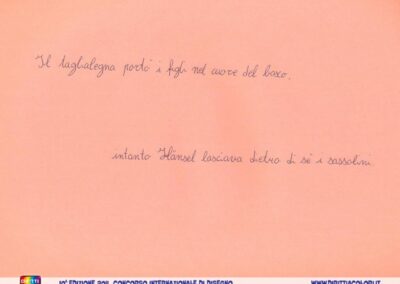 Il taglialegna portò i figli nel cuore del bosco.
intanto Hänsel lasciava dietro di sé i sassolini.
10ª EDIZIONE 2011 CONCORSO INTERNAZIONALE DI DISEGNO WWW.DIRITTIACOLORI.IT